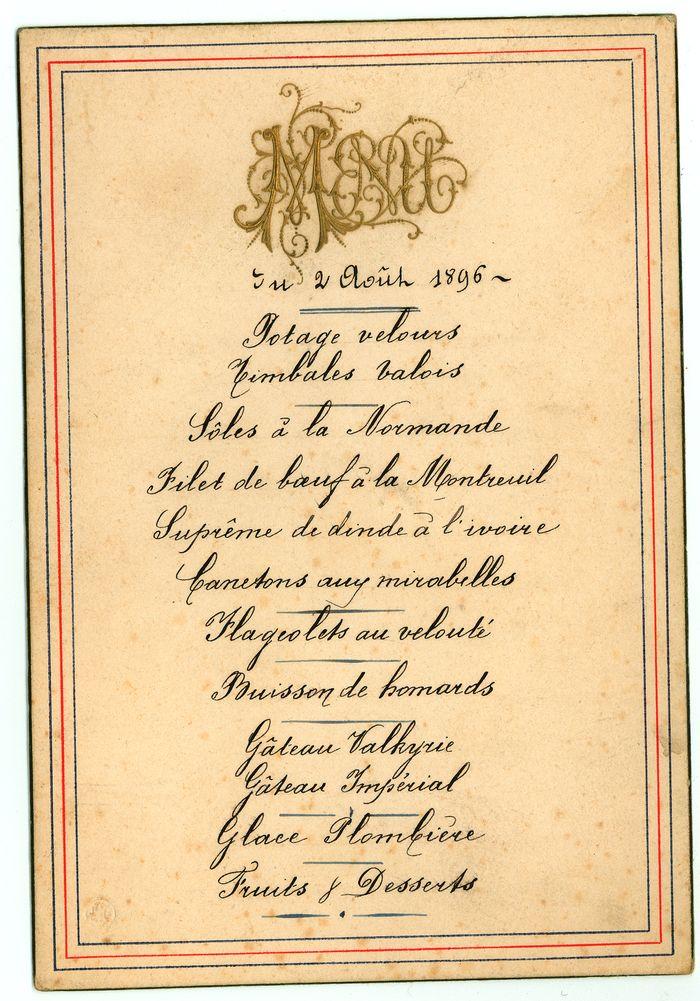 Menu
du 2 Août 1896 ~
Potage velours
Timbales Valois
Sôles à la Normande
Filet de bœuf à la Montreuil
Suprême de dinde à l'ivoire
Canetons aux mirabelles
Flageolets au velouté
Buisson de homards
Gâteau Valkyrie
Gâteau Impérial
Glace Plombière
Fruits & Desserts